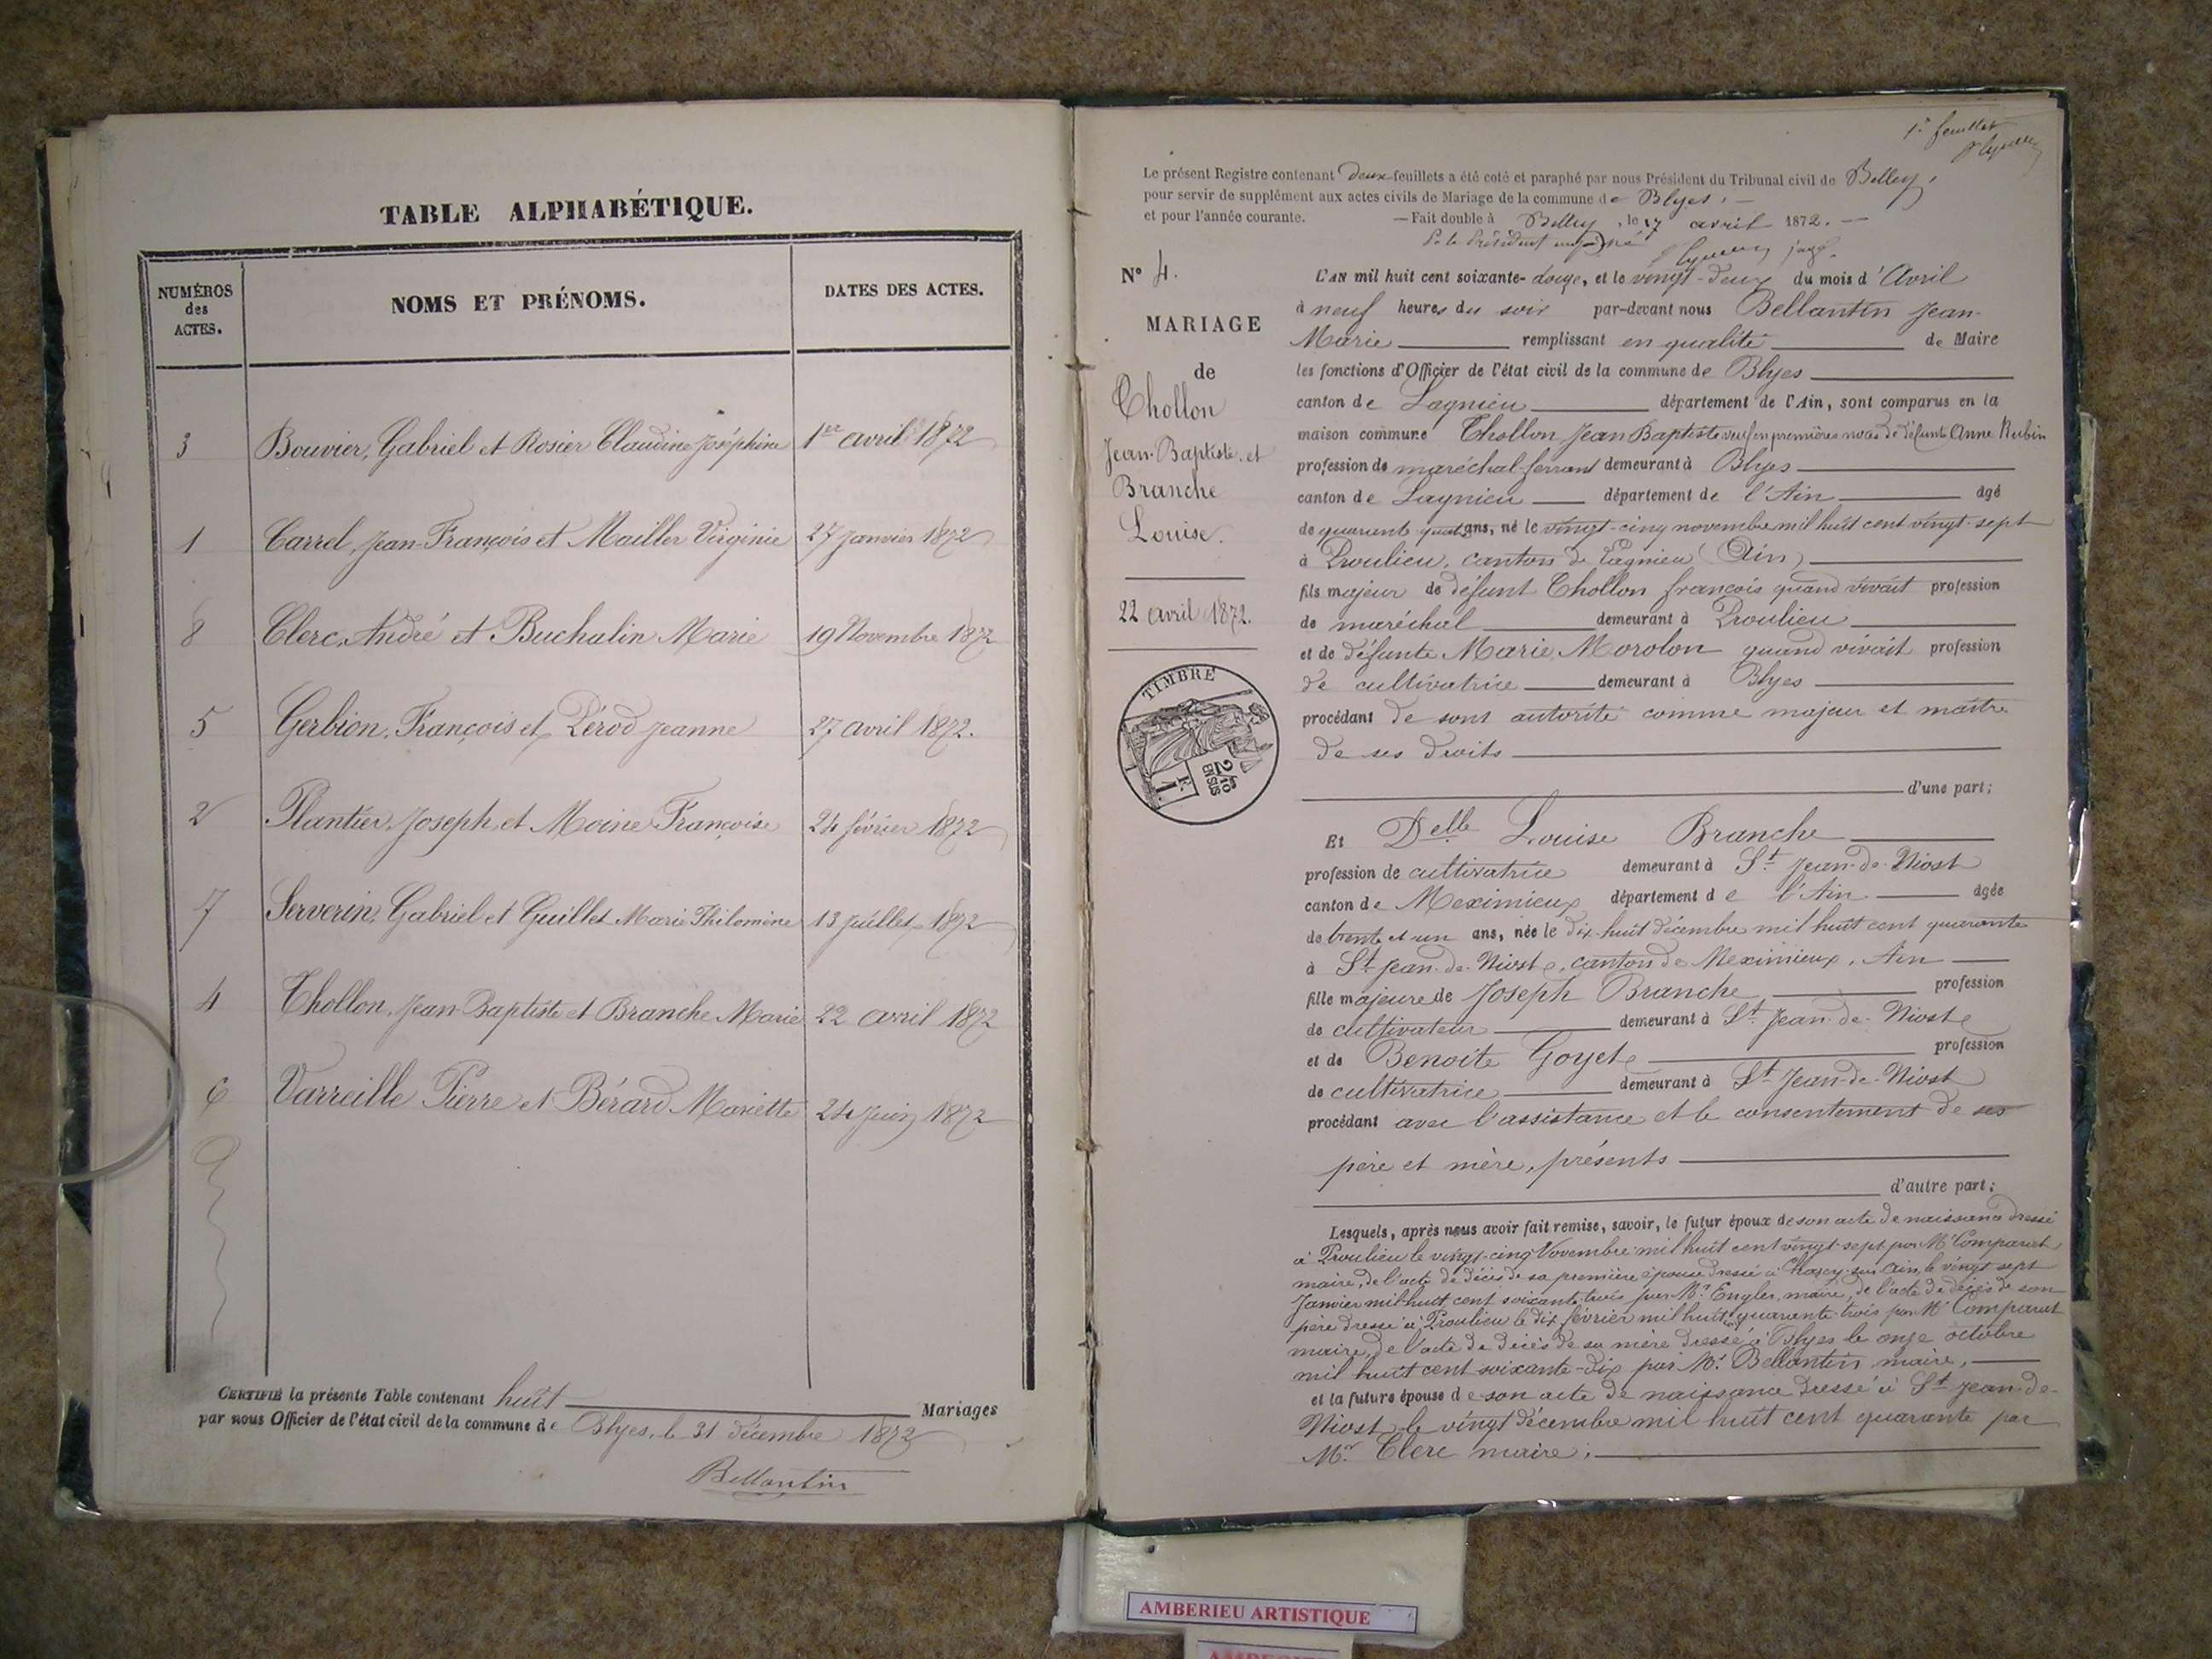 TABLE ALPHABÉTIQUE.
NUMÉROS des ACTES.
NOMS ET PRÉNOMS.
DATES DES ACTES.
3 Bouvier, Gabriel et Rosier Claudine Joséphine 1er avril 1872
1 Carrel, Jean-François et Mailler Virginie 27 Janvier 1872
8 Clerc, André et Buchalin Marie 19 Novembre 1872
5 Gerbion, François et Pérod Jeanne 27 avril 1872.
2 Plantier, Joseph et Moine Françoise 24 février 1872
7 Serverin, Gabriel et Guillet Marie Philomène 13 Juillet 1872
4 Chollon, Jean Baptiste et Branche Marie 22 avril 1872
6 Varreille Pierre et Bérard Mariette 24 Juin 1872
CERTIFIÉ la présente Table contenant huit Mariages
par nous Officier de l'état civil de la commune de Blyes, le 31 décembre 1872
Bellantin
1er feuillet
Le présent Registre contenant deux feuillets a été coté et paraphé par nous Président du Tribunal civil de Belley,
pour servir de supplément aux actes civils de Mariage de la commune de Blyes, —
et pour l'année courante. — Fait double à Belley, le 17 avril 1872. —
Nº 4.
MARIAGE
de
Chollon
Jean-Baptiste et
Branche
Louise.
22 avril 1872.
TIMBRE
2/10 EN SUS
F. 1
L'AN mil huit cent soixante-douze, et le vingt-deux du mois d'Avril
à neuf heures du soir par-devant nous Bellantin Jean-
Marie remplissant en qualité de Maire
les fonctions d'Officier de l'état civil de la commune de Blyes
canton de Lagnieu département de l'Ain, sont comparus en la
maison commune Chollon Jean Baptiste veuf en premières noces de défunte Anne Rubin
profession de maréchal-ferrant demeurant à Blyes
canton de Lagnieu département de l'Ain âgé
de quarante quatre ans, né le vingt-cinq novembre mil huit cent vingt-sept
à Proulieu, canton de Lagnieu (Ain)
fils majeur de défunt Chollon françois quand vivait profession
de maréchal demeurant à Proulieu
et de défunte Marie Morolon quand vivait profession
de cultivatrice demeurant à Blyes
procédant de sont autorité comme majeur et maître
de ses droits
d'une part;
Et Delle Louise Branche
profession de cultivatrice demeurant à St Jean-de-Niost
canton de Meximieux département de l'Ain âgée
de trente et un ans, née le dix-huit décembre mil huit cent quarante
à St Jean-de-Niost, canton de Meximieux, Ain
fille majeure de Joseph Branche profession
de cultivateur demeurant à St Jean-de-Niost
et de Benoite Goyet profession
de cultivatrice demeurant à St Jean-de-Niost
procédant avec l'assistance et le consentement de ses
père et mère, présents
d'autre part;
Lesquels, après nous avoir fait remise, savoir, le futur époux de son acte de naissance dressé
à Proulieu le vingt-cinq Novembre mil huit cent vingt-sept par Mr Comparat
maire, de l'acte de décès de sa première épouse dressé à Chazey-sur-Ain, le vingt sept
Janvier mil-huit cent soixante-trois par Mr Engler, maire, de l'acte de décès de son
père dressé à Proulieu le dix février mil huit cent quarante-trois par Mr Comparat
maire, de l'acte de décès de sa mère dressé à Blyes le onze octobre
mil huit cent soixante-dix par Mr Bellantin maire,
et la future épouse de son acte de naissance dressé à St Jean-de-
Niost le vingt décembre mil huit cent quarante par
Mr Clerc maire;
AMBERIEU ARTISTIQUE